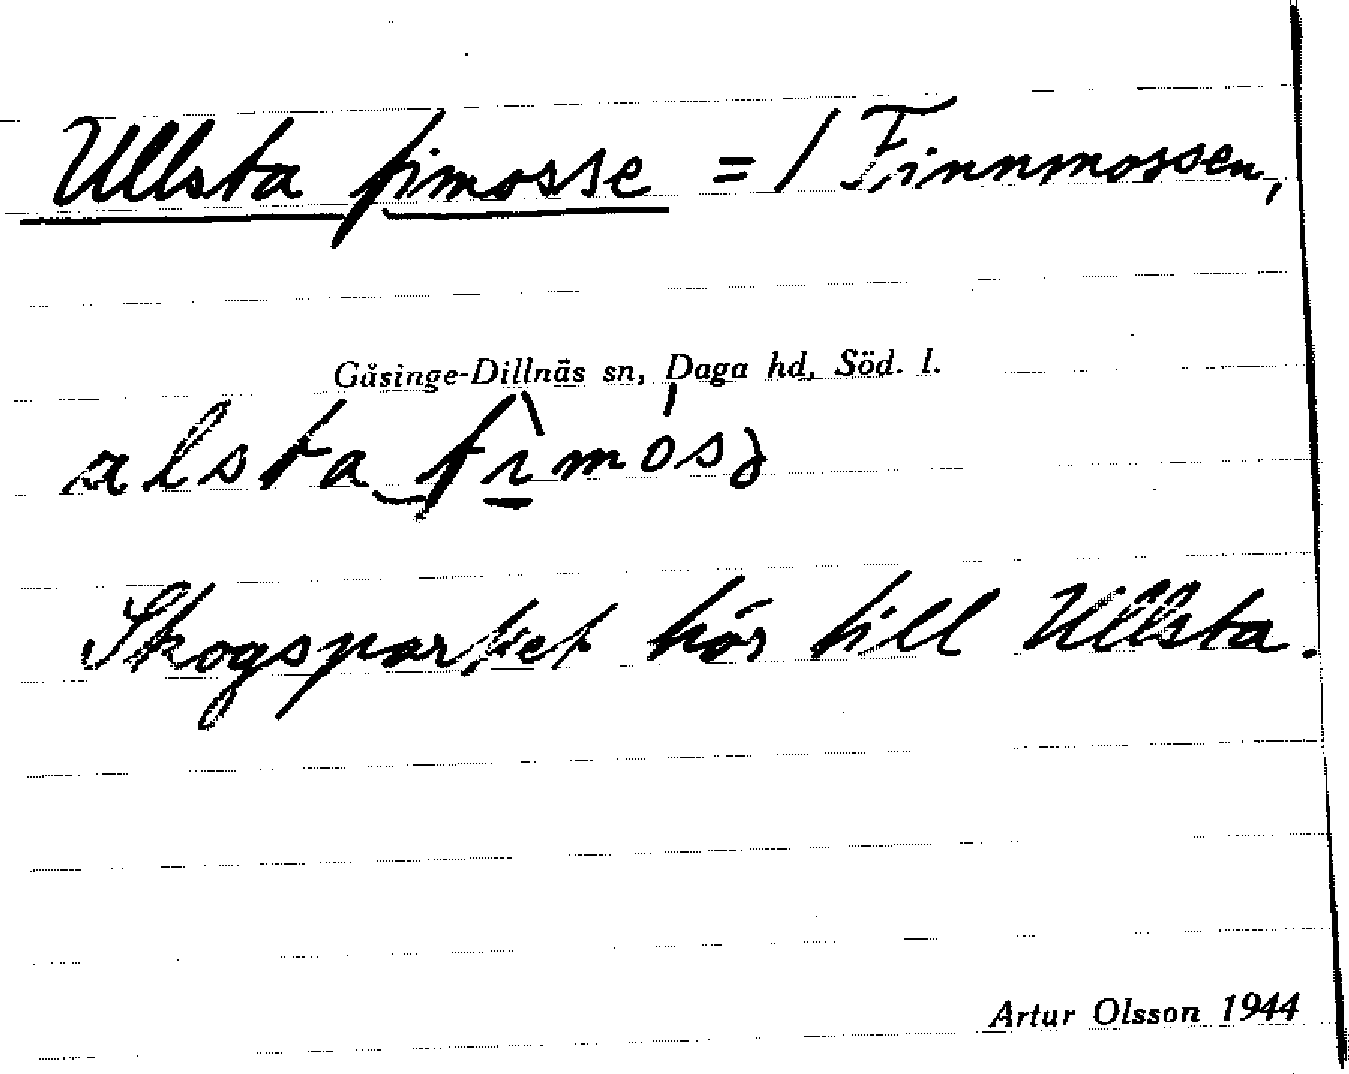 Ullsta fimosse = / Finnmossen,
Gåsinge-Dillnäs sn, Daga hd, Söd. l.
alsta
Skogsparket hör till Ullsta.
Artur Olsson 1944